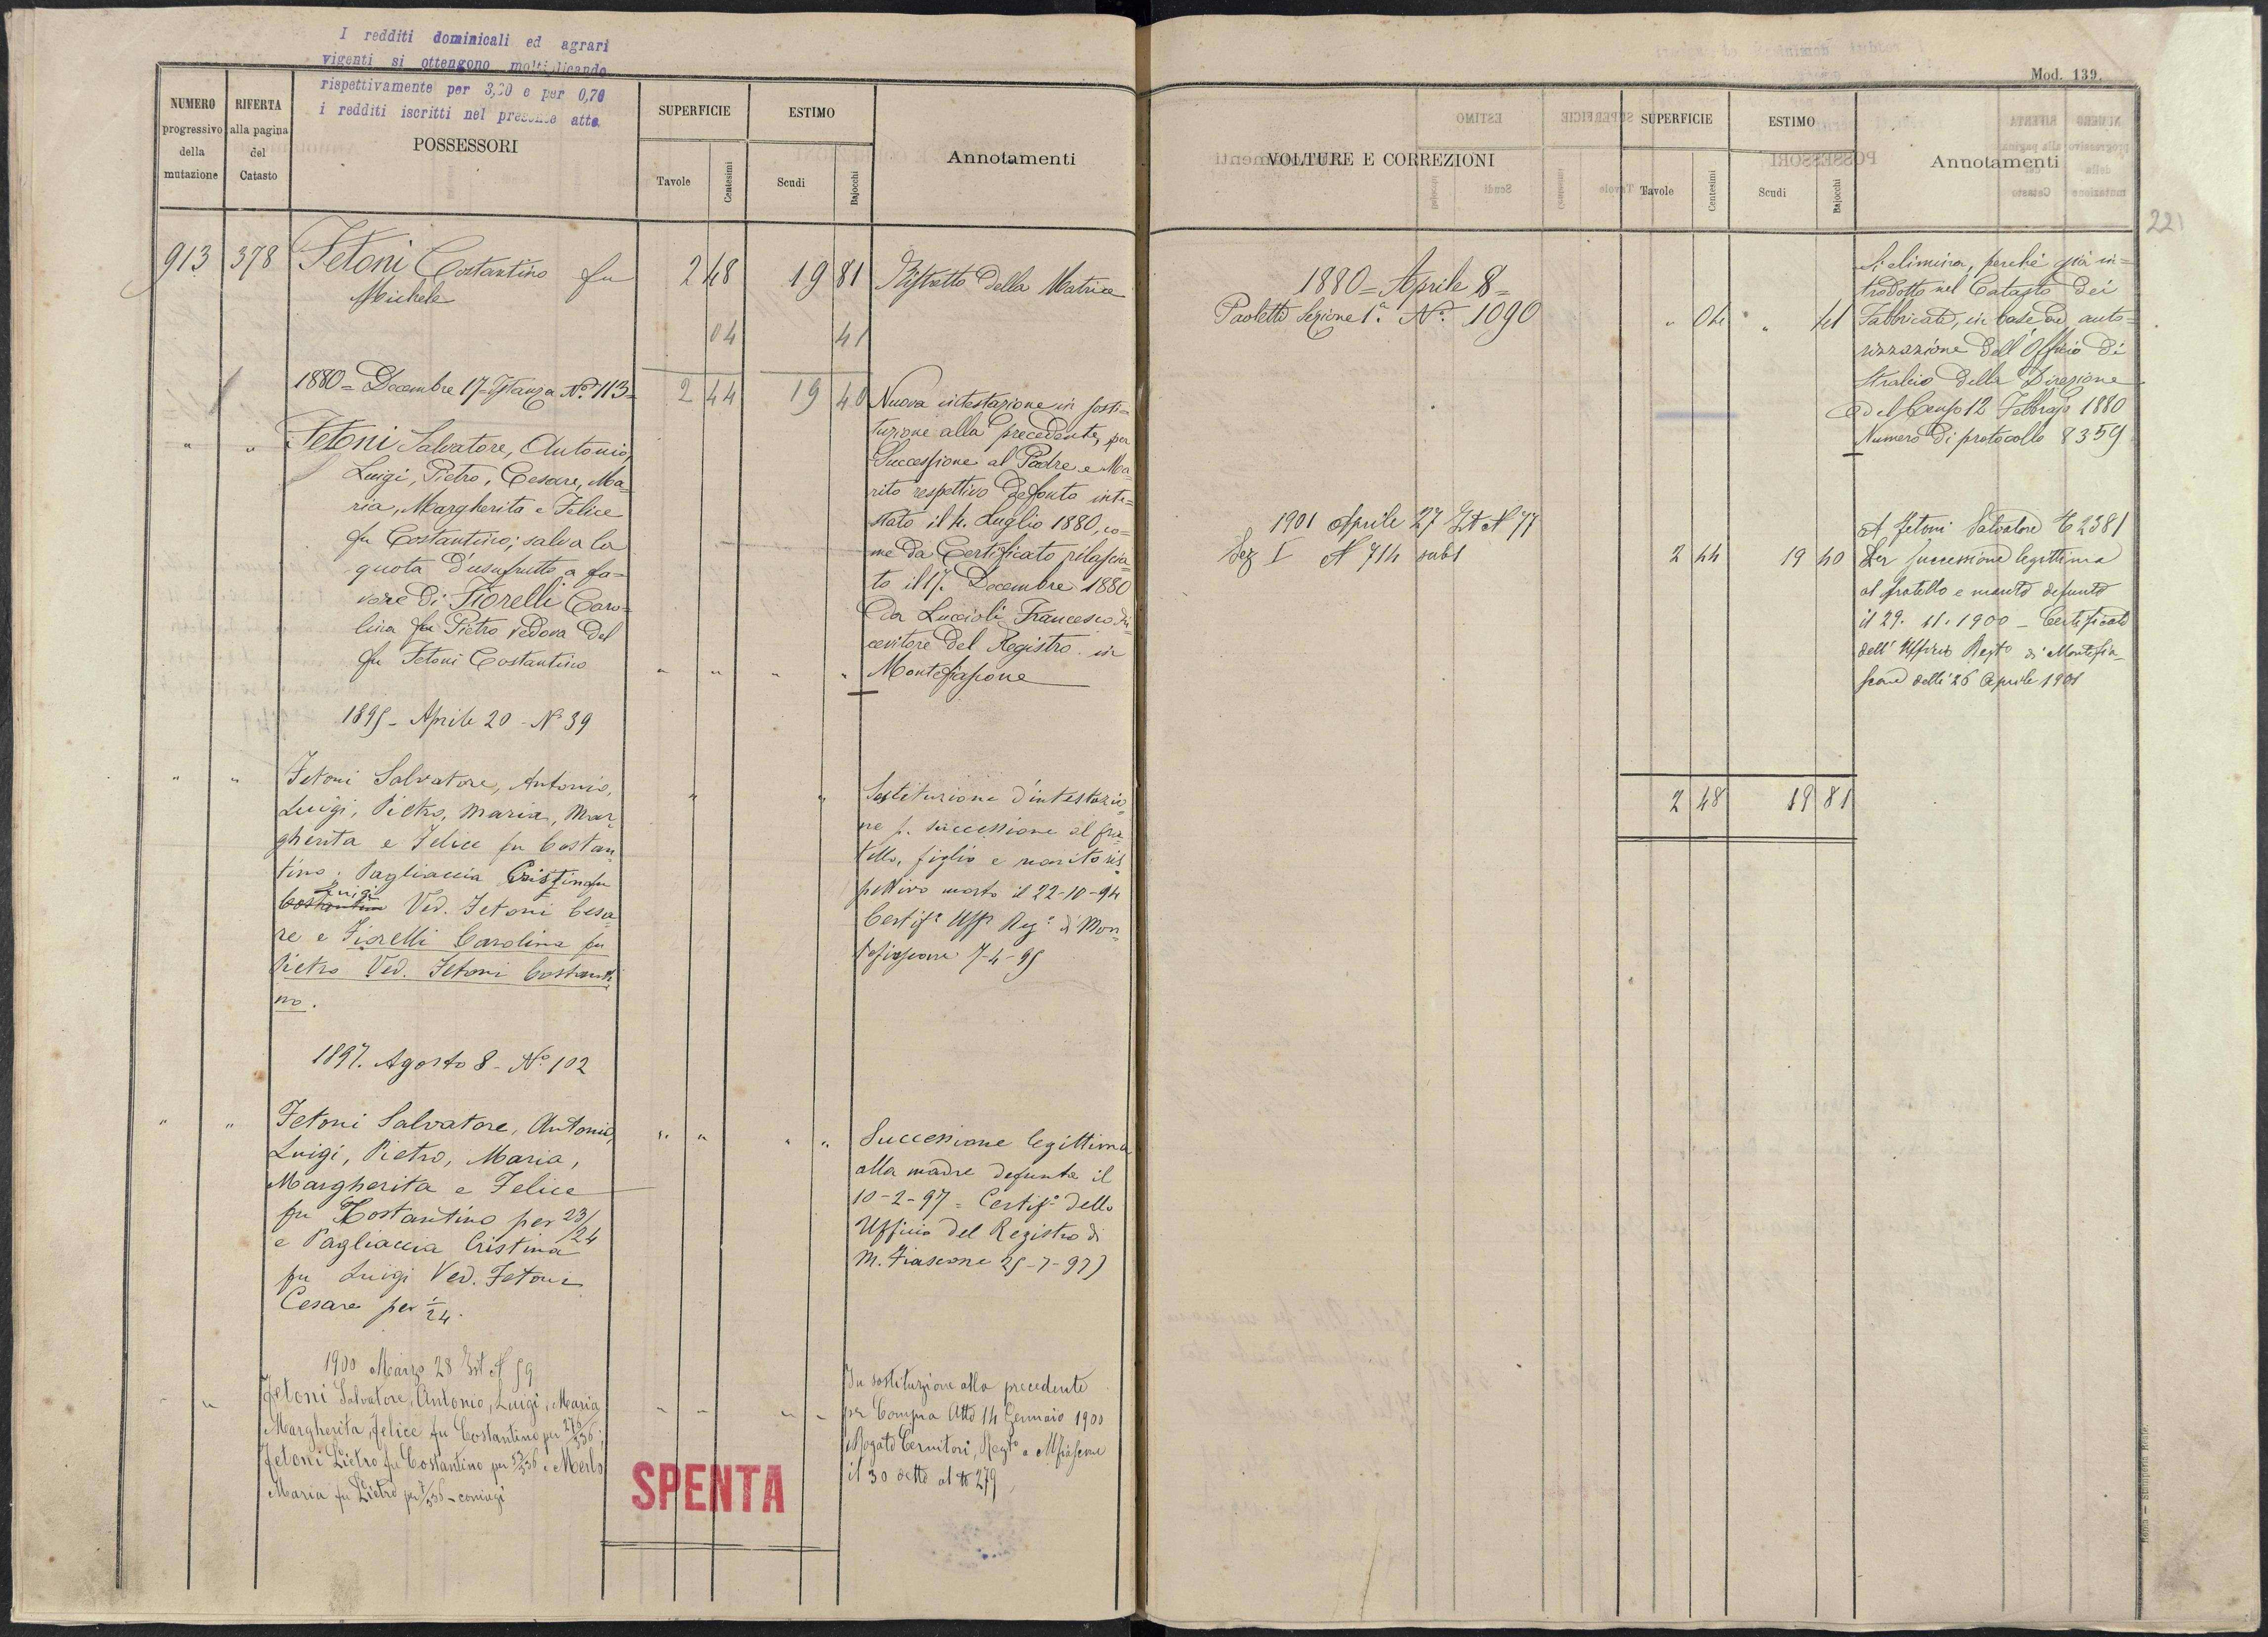 I redditi dominicali ed agrari
vigenti si ottengono moltiplicando
rispettivamente per 3,20 e per 0,70
i redditi iscritti nel presente atto.
NUMERO
progressivo
della
mutazione
RIFERTA
alla pagina
del
Catasto
POSSESSORI
SUPERFICIE
Tavole
Centesimi
ESTIMO
Scudi
Bajocchi
Annotamenti
913 378 Fetoni Costantino fu 2 48 19 81 Ristretto della Matrice
Michele
04 41
1880 = Decembre 17 = Istanza No. 113 = 2 44 19 40
" " Fetoni Salvatore, Antonio,
Luigi, Pietro, Cesare, Ma=
ria, Margherita e Felice
fu Costantino; salva la
quota d'usufrutto a fa=
vore di Fiorelli Caro=
lina fu Pietro vedova del
fu Fetoni Costantino " " " "
Nuova intestazione in sosti=
tuzione alla precedente, per
Successione al Padre e Ma=
rito respettivo defonto inte=
stato il 4. Luglio 1880, co=
me da Certificato rilascia=
to il 17. Decembre 1880
da Luccioli Francesco Ri=
cevitore del Registro in
Montefiascone
1895 - Aprile 20 - No 39
" " Fetoni Salvatore, Antonio,
Luigi, Pietro, Maria, Mar=
gherita e Felice fu Costan=
tino; Pagliaccia Cristina fu
Luigi
Costantino Ved. Fetoni Cesa
re e Fiorelli Carolina fu
Pietro Ved. Fetoni Costanti
no.
" "
Sostituzione d'intestazio
ne p. successione al fra
tello, figlio e marito ris
pettivo morto il 22-10-94
Certifo Uffo Rego di Mon
tefiascone 7-4-95
1897. Agosto 8 - No. 102
" " Fetoni Salvatore, Antonio,
Luigi, Pietro, Maria,
Margherita e Felice
fu Costantino per 23/24
e Pagliaccia Cristina
fu Luigi Ved. Fetoni
Cesare per 1/24.
" " " "
Successione legittima
alla madre defunta il
10-2-97 = Certifo dello
Ufficio del Registro di
M. Fiascone 25-7-97)
1900 Marzo 28 Ist N 59
" " Fetoni Salvatore, Antonio, Luigi, Maria,
Margherita, Felice fu Costantino per 276/336;
Fetoni Pietro fu Costantino per e Merlo
Maria fu Pietro per - coniugi
" " " "
In sostituzione alla precedente
per Compra Atto 14 Gennaio 1900
Rogato Cernitori, Regto a Mfiascone
il 30 detto al N 279
SPENTA
Mod. 139.
VOLTURE E CORREZIONI
SUPERFICIE
Tavole
Centesimi
ESTIMO
Scudi
Bajocchi
Annotamenti
221
1880 = Aprile 8 =
Paoletti Sezione 1a. No. 1090 " 04 " 41
Si elimina, perchè già in=
trodotto nel Catasto dei
Fabbricati, in base ad auto=
rizzazione dell'Officio di
Stralcio della Direzione
del Censo 12 Febbrajo 1880
Numero di protocollo 8359
1901 Aprile 27 Ist N 77
Sez I N 714 sub 1 2 44 19 40
A Fetoni Salvatore 2381
Per successione legittima
al fratello e marito defunto
il 29. 11. 1900 - Certificato
dell'Ufficio Regto di Montefia=
scone delli 26 Aprile 1901
2 48 19 81
Roma — Stamperia Reale.